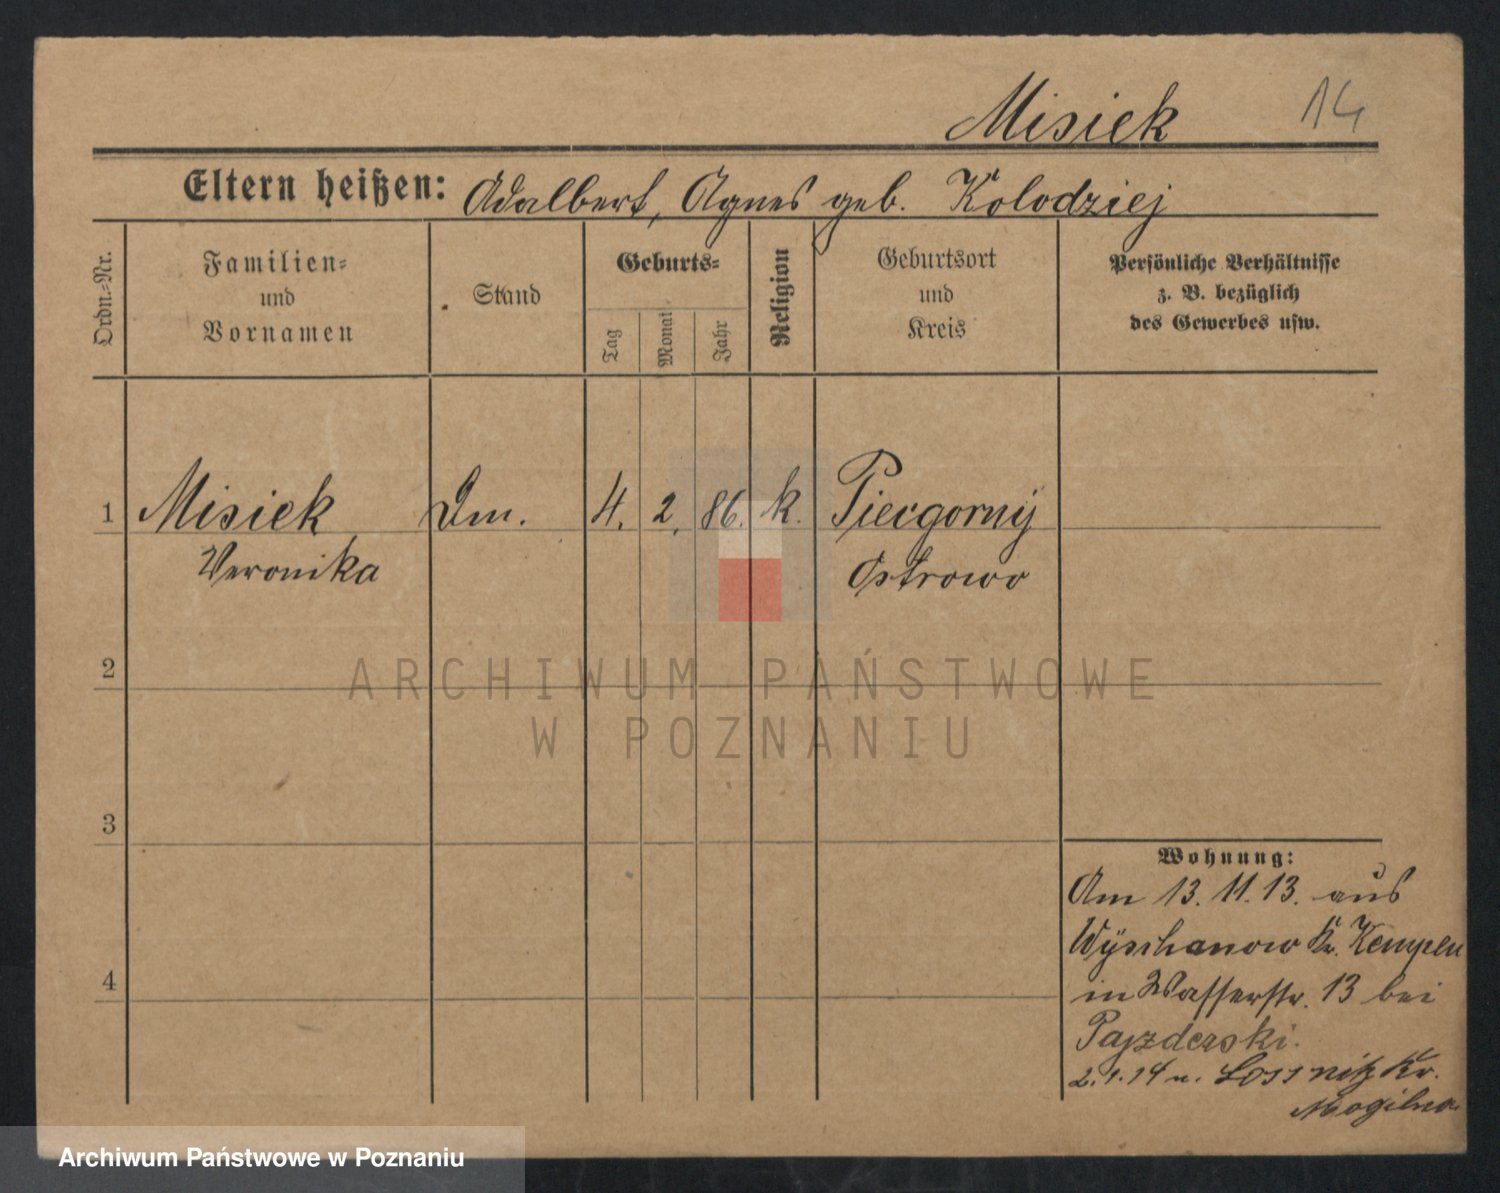 Misiek 14
Eltern heißen: Adalbert, Agnes geb. Kolodziej
Ordn.-Nr.
Familien-
und
Vornamen
Stand
Geburts-
Tag
Monat
Jahr
Religion
Geburtsort
und
Kreis
Persönliche Verhältnisse
z. B. bezüglich
des Gewerbes usw.
1 Misiek Dm. 4. 2. 86. k. Piecgorny
Veronika Ostrowo
2
ARCHIWUM PAŃSTWOWE
W POZNANIU
3
Wohnung:
Am 13. 11. 13. aus
Wyschanow Kr. Kempen
4
in Wasserstr. 13 bei
Pajzderski.
2. 1. 14 n. Lossnitz Kr.
Mogilno
Archiwum Państwowe w Poznaniu